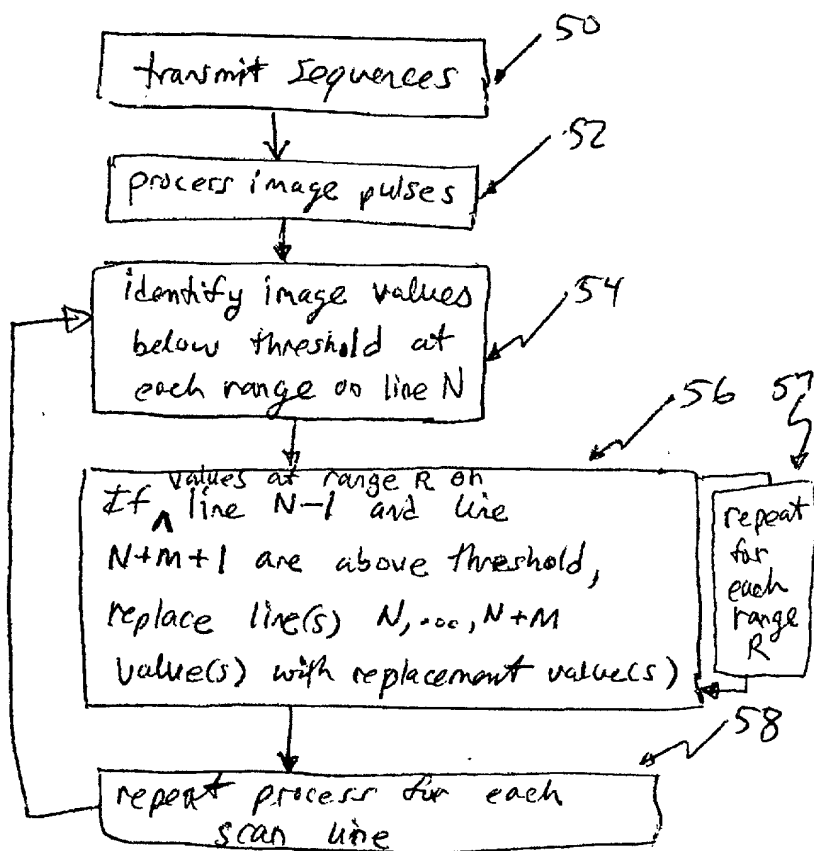 50
transmit sequences
52
process image pulses
54
identify image values
below threshold at
each range on line N
56
57
values at range R on
If ∧ line N-1 and line
N+m+1 are above threshold,
replace line(s) N,...,N+M
value(s) with replacement value(s)
repeat
for
each
range
R
58
repeat process for each
scan line